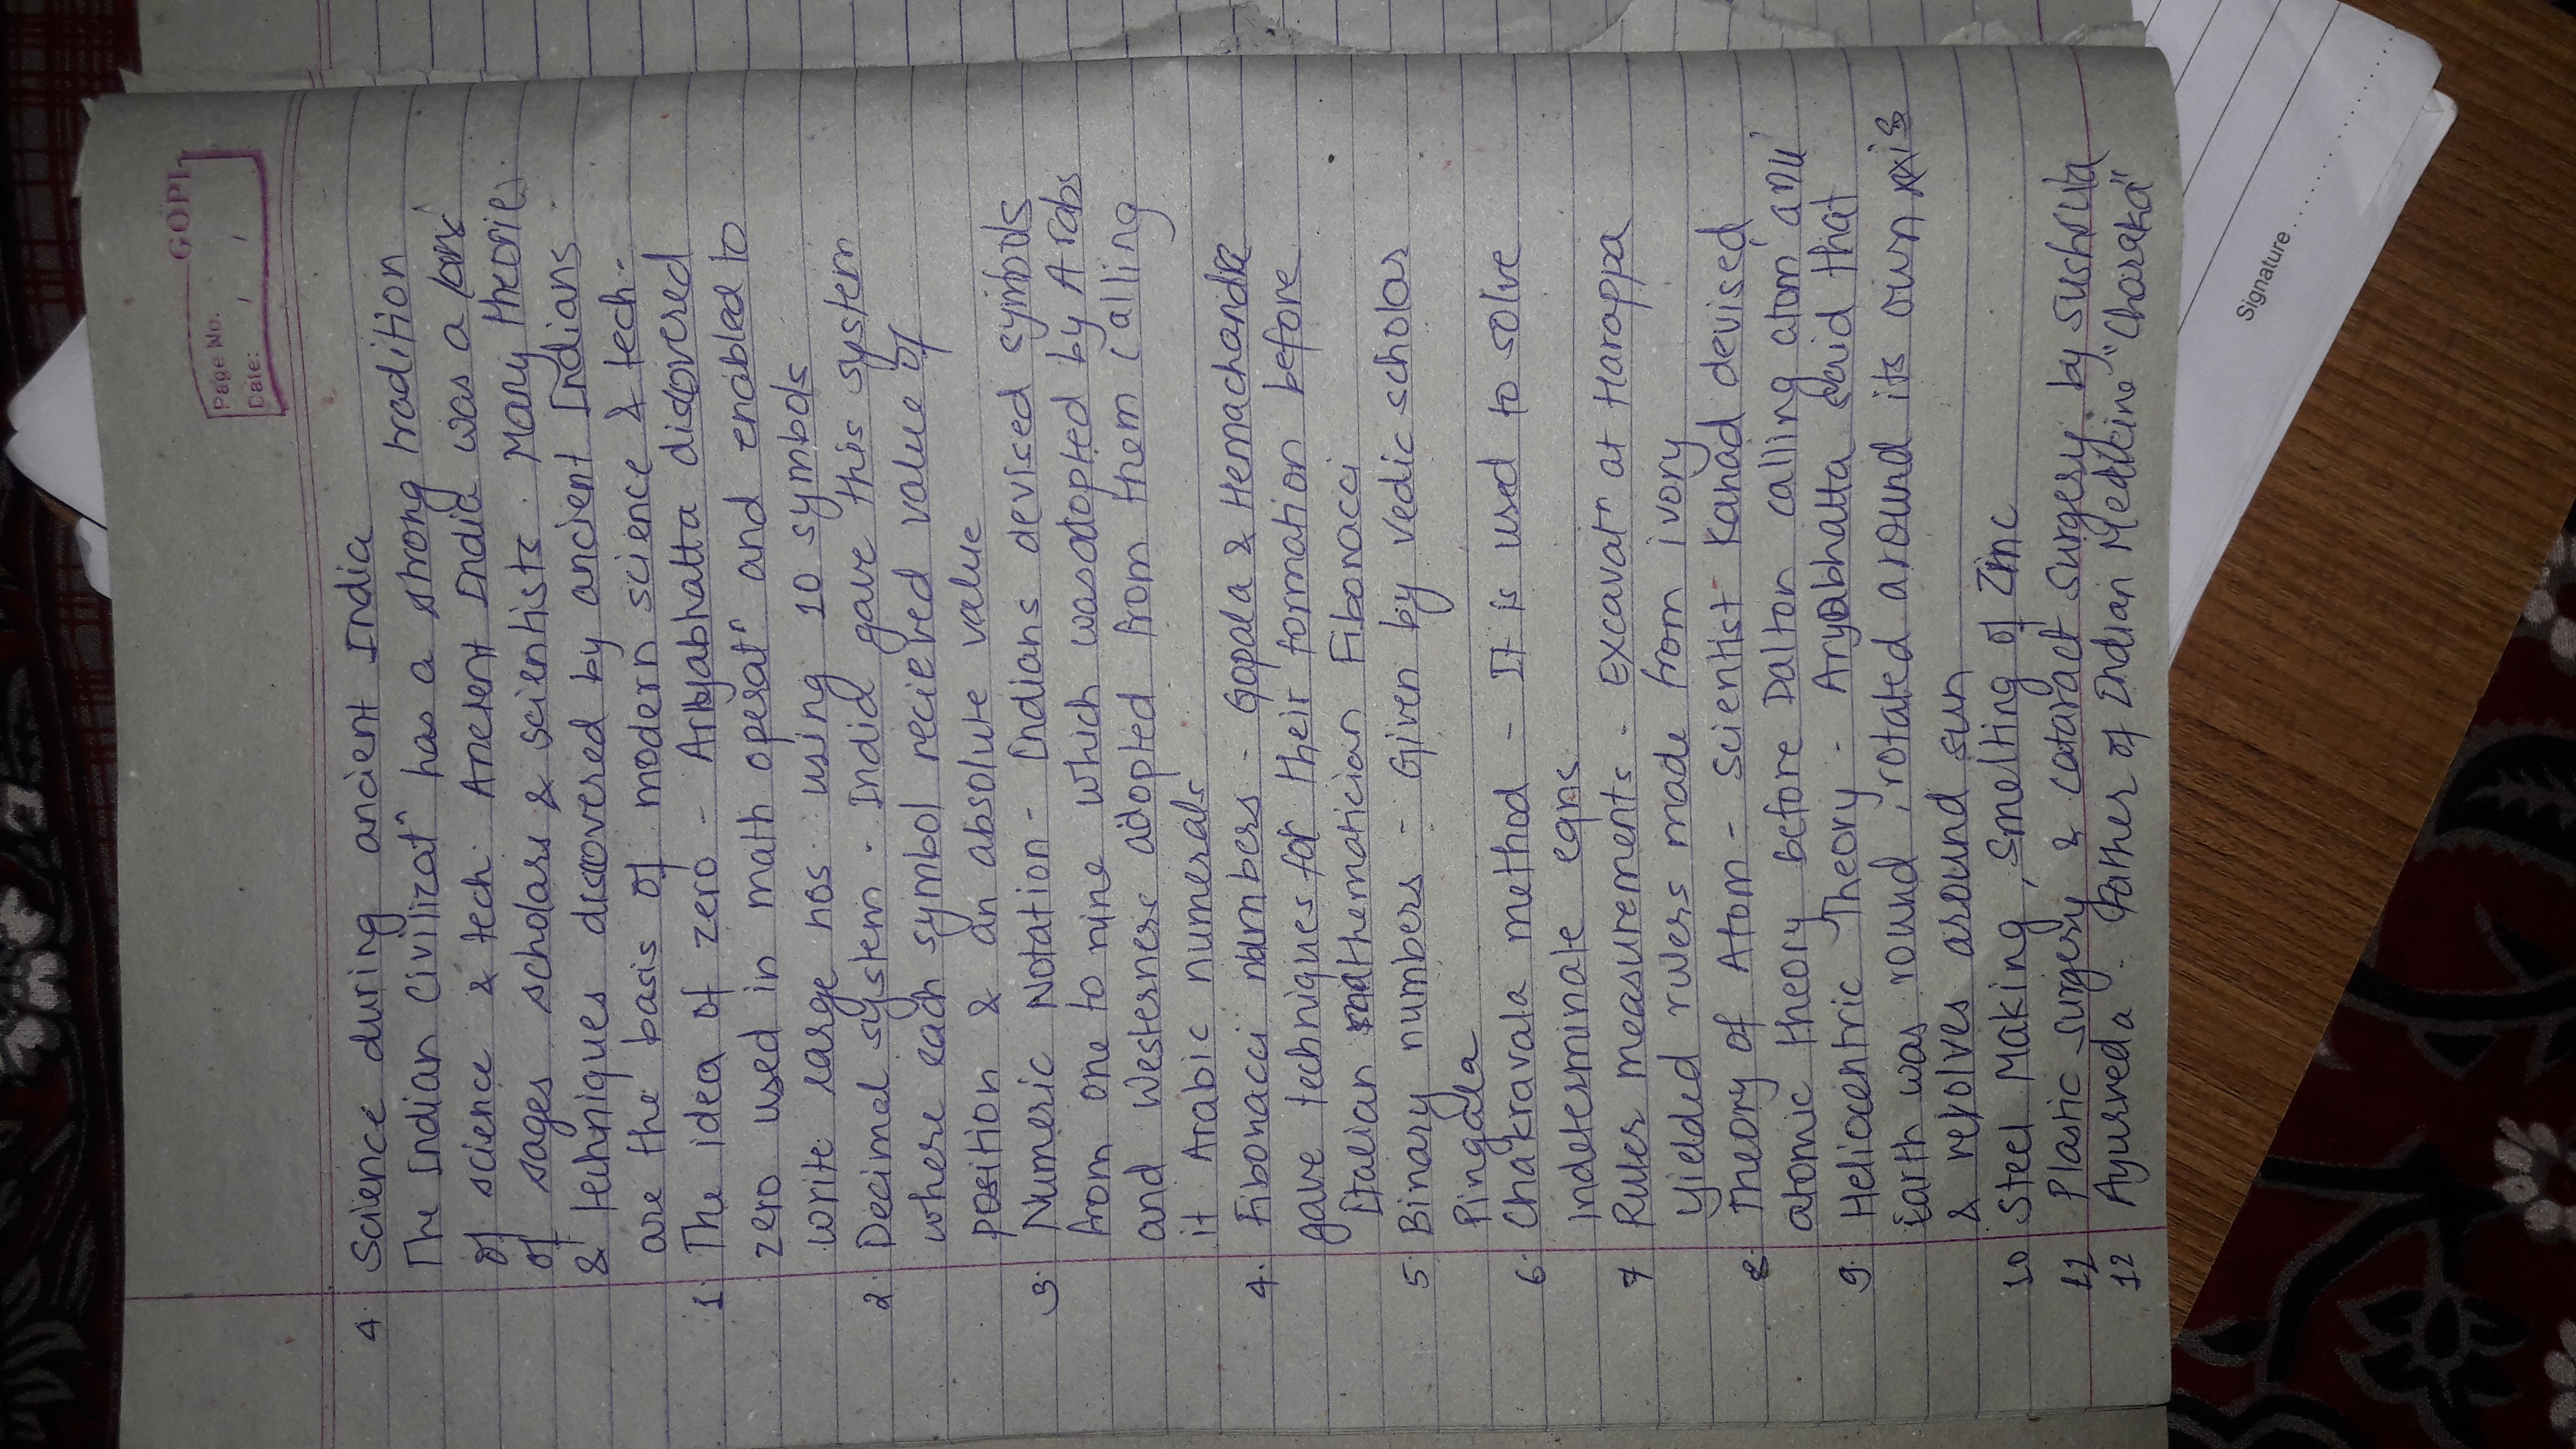 GOPI
Page No.
Date: / /
4. Science during ancient India
The Indian Civilizatⁿ has a strong tradition
of science & tech. Ancient India was a land
of sages scholars & scientists. Many theories
& techniques discovered by ancient Indians
are the basis of modern science & tech.
1. The idea of zero - Aryabhatta discovered
zero used in math operatⁿ and enabled to
write large nos. using 10 symbols
2. Decimal system - India gave this system
where each symbol recieved value of
position & an absolute value
3. Numeric Notation - Indians devised symbols
from one to nine which was adopted by Arabs
and Westerners adopted from them calling
it Arabic numerals
4. Fibonacci numbers - Gopala & Hemachandra
gave techniques for their formation before
Italian mathematician Fibonacci
5. Binary numbers - Given by Vedic scholar
Pingala
6. Chakravala method - It is used to solve
indeterminate eqns
7 Ruler measurements - Excavatⁿ at Harappa
yielded rulers made from ivory
8. Theory of Atom - Scientist Kanad devised
atomic theory before Dalton calling atom 'anu'
9. Heliocentric Theory - Aryabhatta said that
Earth was round, rotated around its own axis
& revolves around sun
10 Steel Making, Smelting of Zinc
11 Plastic surgery & cataract surgery by Sushruta
12 Ayurveda - Father of Indian Medicine "Charaka"
Signature